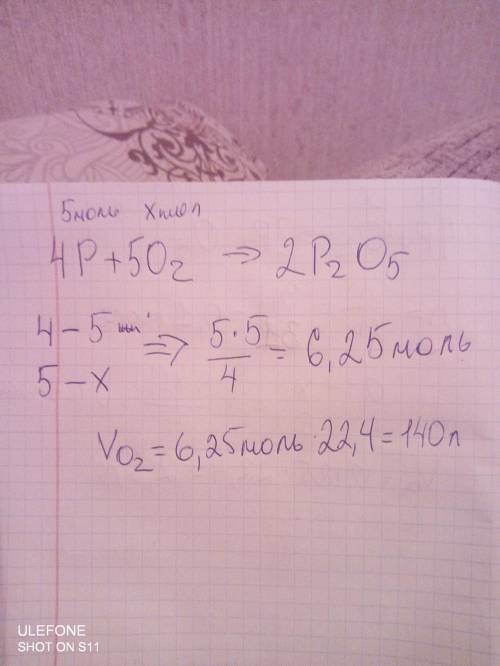 5моль х моль
4P + 5O₂ → 2P₂O₅
4 – 5 ⇒ 5·5/4 = 6,25 моль
5 – х
V O₂ = 6,25 моль · 22,4 = 140 л
ULEFONE
SHOT ON S11